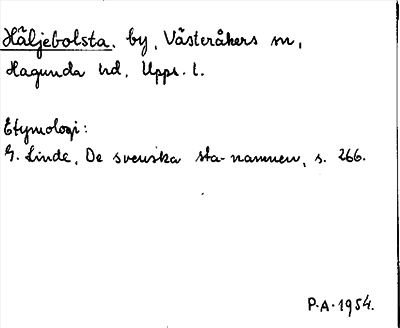 Häljebolsta. by, Västeråkers sn,
Hagunda hd, Upps. l.
Etymologi:
G. Linde, De svenska sta-namnen, s. 266.
P.A. 1954.